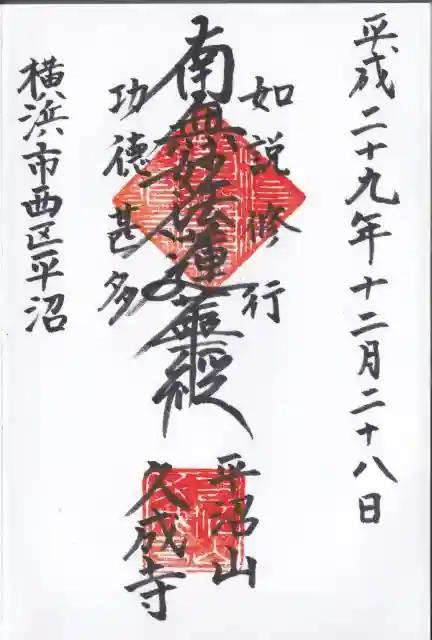 平成二十九年十二月二十八日
如説修行
南無妙法蓮華経
功徳甚多
平沼山
久成寺
横浜市西区平沼